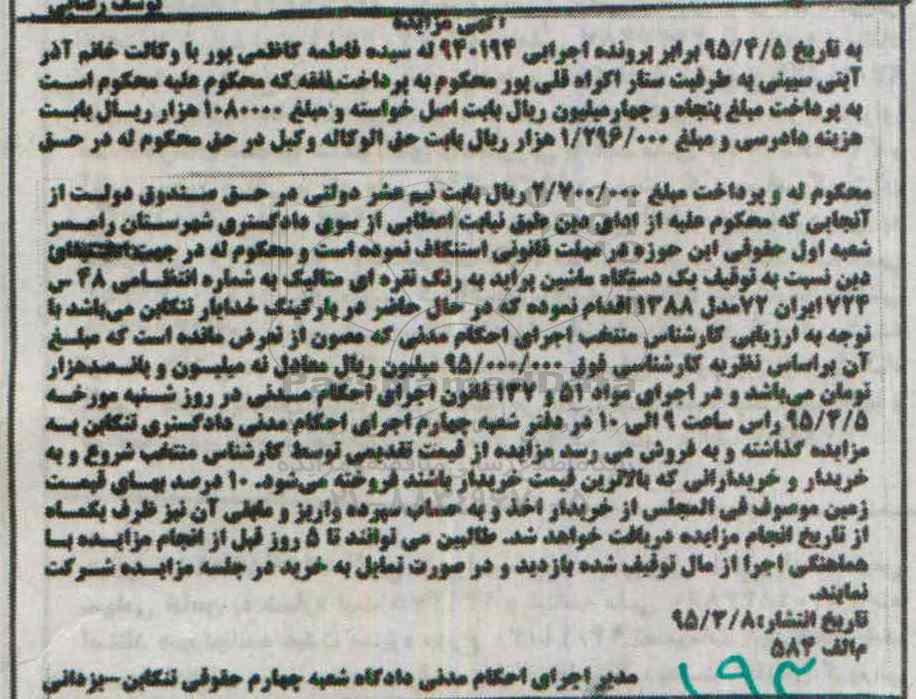 یوسف رضایی
آگهی مزایده
به تاریخ ۹۵/۴/۵ برابر پرونده اجرایی ۹۴۰۱۹۴ له سیده فاطمه کاظمی پور با وکالت خانم آذر
آیتی سیبنی به طرفیت ستار اکراه قلی پور محکوم به پرداخت نفقه که محکوم علیه محکوم است
به پرداخت مبلغ پنجاه و چهارمیلیون ریال بابت اصل خواسته و مبلغ ۱۰۸۰۰۰۰ هزار ریال بابت
هزینه دادرسی و مبلغ ۱/۲۹۶/۰۰۰ هزار ریال بابت حق الوکاله وکیل در حق محکوم له در حق
محکوم له و پرداخت مبلغ ۲/۷۰۰/۰۰۰ ریال بابت نیم عشر دولتی در حق صندوق دولت از
آنجایی که محکوم علیه از ادای دین طبق نیابت اعطایی از سوی دادگستری شهرستان رامسر
شعبه اول حقوقی این حوزه در مهلت قانونی استنکاف نموده است و محکوم له در جهت استیفای
دین نسبت به توقیف یک دستگاه ماشین پراید به رنگ نقره ای متالیک به شماره انتظامی ۴۸ س
۷۲۴ ایران ۷۲ مدل ۱۳۸۸ اقدام نموده که در حال حاضر در پارکینگ خدایار تنکابن می‌باشد با
توجه به ارزیابی کارشناس منتخب اجرای احکام مدنی که مصون از تعرض مانده است که مبلغ
آن براساس نظریه کارشناسی فوق ۹۵/۰۰۰/۰۰۰ میلیون ریال معادل نه میلیون و پانصدهزار
تومان می‌باشد و در اجرای مواد ۵۱ و ۱۳۷ قانون اجرای احکام مدنی در روز شنبه مورخه
۹۵/۴/۵ راس ساعت ۹ الی ۱۰ در دفتر شعبه چهارم اجرای احکام مدنی دادگستری تنکابن به
مزایده گذاشته و به فروش می رسد مزایده از قیمت تقدیمی توسط کارشناس منتخب شروع و به
خریدار و خریدارانی که بالاترین قیمت خریدار باشند فروخته می‌شود. ۱۰ درصد بهای قیمت
زمین موصوف فی المجلس از خریدار اخذ و به حساب سپرده واریز و مابقی آن نیز ظرف یکماه
از تاریخ انجام مزایده دریافت خواهد شد. طالبین می توانند تا ۵ روز قبل از انجام مزایده با
هماهنگی اجرا از مال توقیف شده بازدید و در صورت تمایل به خرید در جلسه مزایده شرکت
نمایند.
تاریخ انتشار: ۹۵/۳/۸
م/الف ۵۸۴
مدیر اجرای احکام مدنی دادگاه شعبه چهارم حقوقی تنکابن-یزدانی
۱۹۳